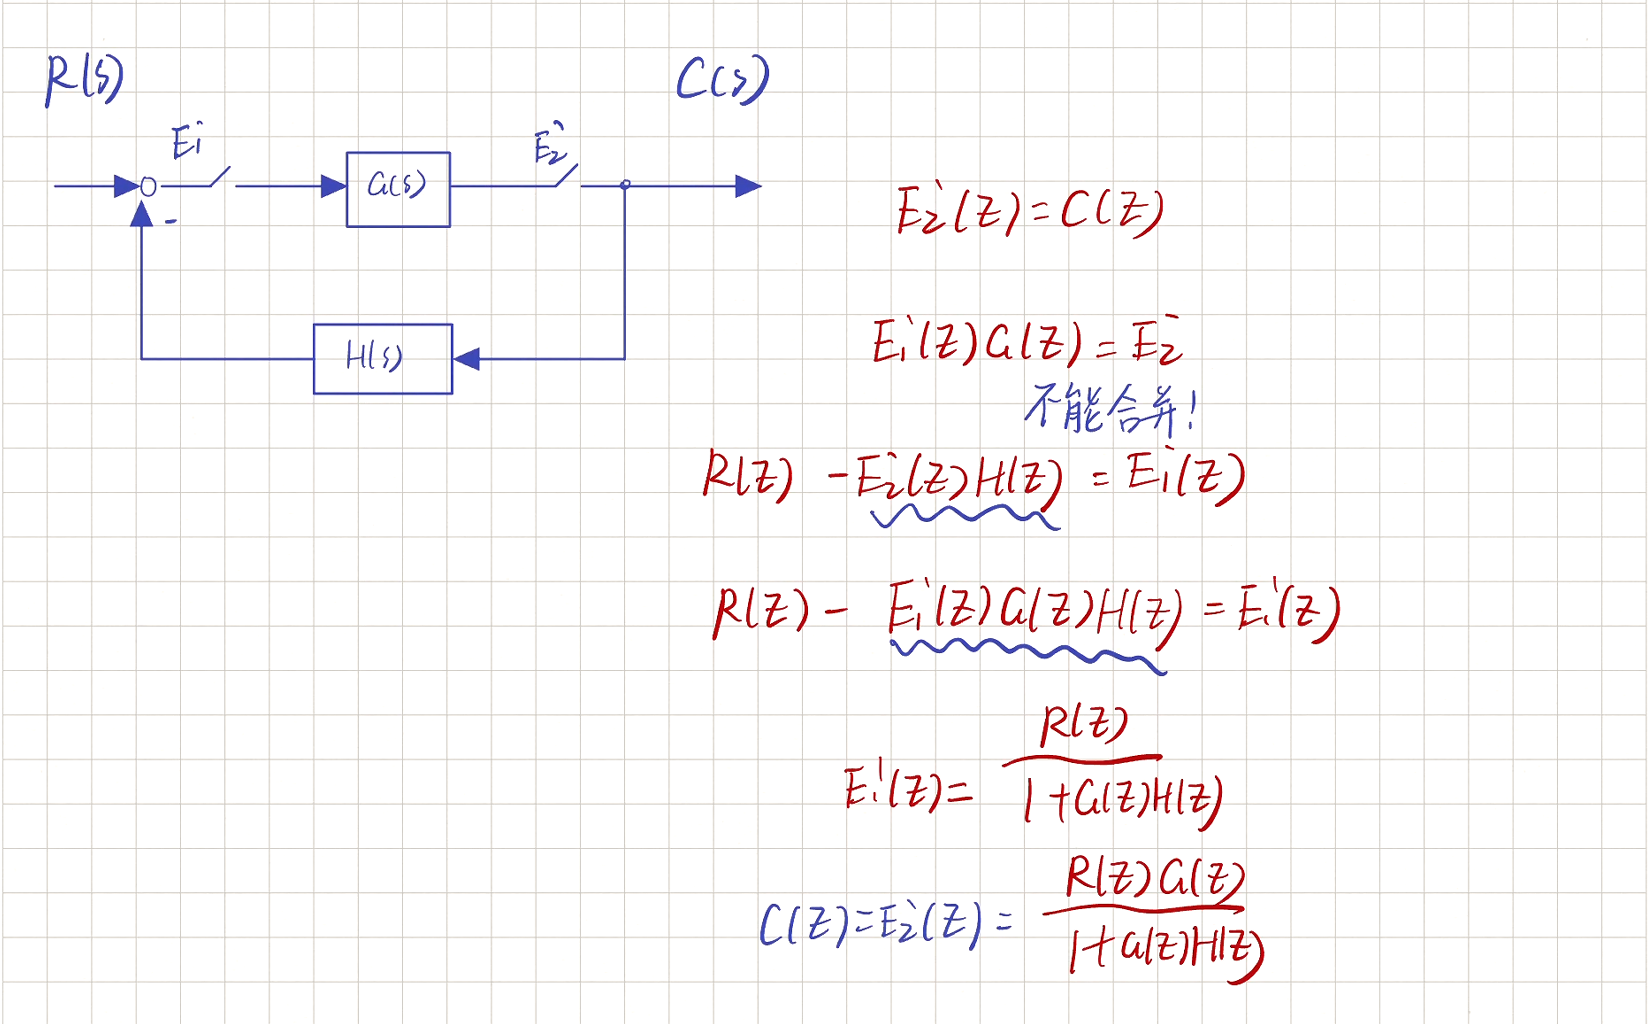 R(s)
C(s)
E₁
E₂'
G(s)
H(s)
E₂'(z)=C(z)
E₁'(z)G(z)=E₂'
不能合并!
R(z) -E₂'(z)H(z) = E₁'(z)
R(z)- E₁'(z)G(z)H(z) = E₁'(z)
E₁'(z)= R(z) / 1+G(z)H(z)
C(z)=E₂'(z)= R(z)G(z) / 1+G(z)H(z)